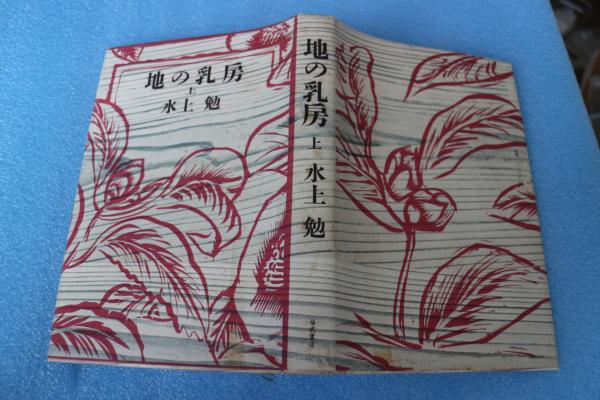 地の乳房
上
水上 勉
地の乳房 上 水上 勉
福武書店